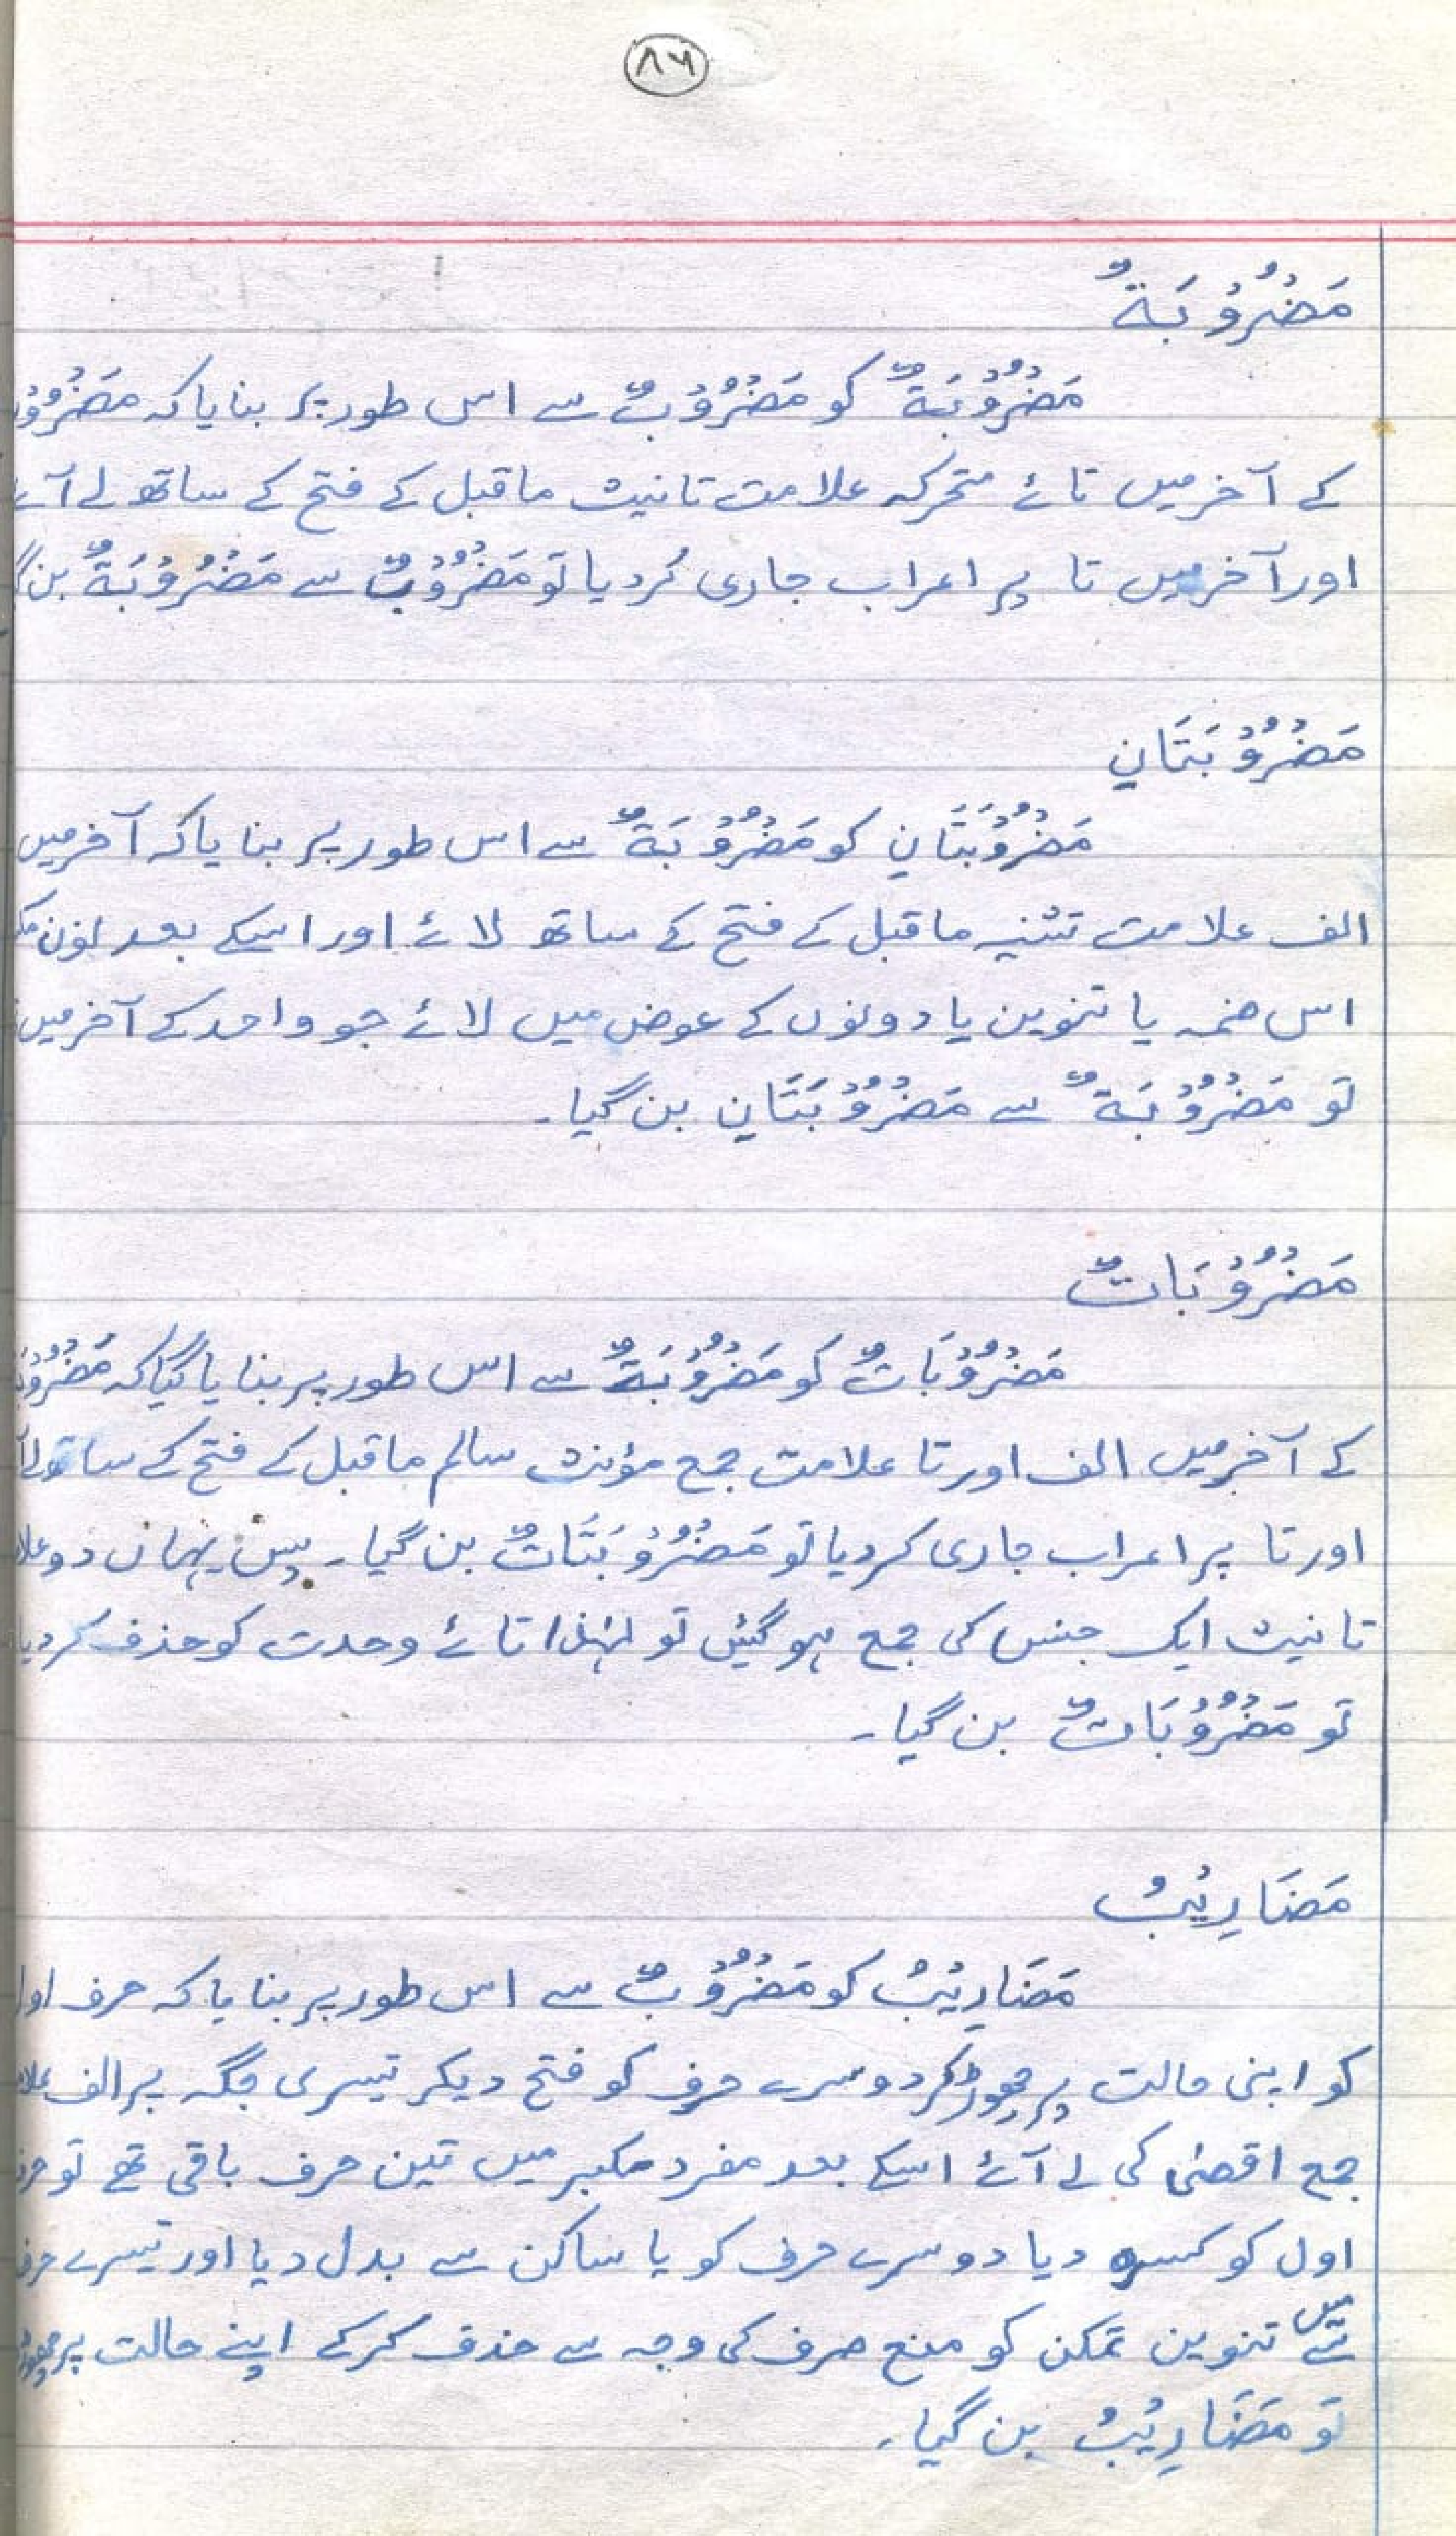 ۸۶
مَضْرُوْبَةٌ
مَضْرُوْبَةٌ کو مَضْرُوْبٌ سے اس طور پر بنایا کہ
کے آخر میں تائے متحرکہ علامت تانیث ماقبل کے فتح کے ساتھ لے آئے
اور آخر میں تا پر اعراب جاری کردیا تو مَضْرُوْبٌ سے مَضْرُوْبَةٌ بن
مَضْرُوْبَتَانِ
مَضْرُوْبَتَانِ کو مَضْرُوْبَةٌ سے اس طور پر بنایا کہ آخر میں
الف علامت تثنیہ ماقبل کے فتح کے ساتھ لائے اور اسکے بعد نون
اس ضمہ یا تنوین یا دونوں کے عوض میں لائے جو واحد کے آخر میں
تو مَضْرُوْبَةٌ سے مَضْرُوْبَتَانِ بن گیا۔
مَضْرُوْبَاتٌ
مَضْرُوْبَاتٌ کو مَضْرُوْبَةٌ سے اس طور پر بنایا گیا کہ
کے آخر میں الف اور تا علامت جمع مؤنث سالم ماقبل کے فتح کے ساتھ
اور تا پر اعراب جاری کردیا تو مَضْرُوْبَتَاتٌ بن گیا۔ پس یہاں دو
تانیث ایک جنس کی جمع ہوگئیں تو لہٰذا تائے وحدت کو حذف کردیا
تو مَضْرُوْبَاتٌ بن گیا۔
مَضَارِيْبُ
مَضَارِيْبُ کو مَضْرُوْبٌ سے اس طور پر بنایا کہ حرف
کو اپنی حالت پر چھوڑ کر دوسرے حرف کو فتح دیکر تیسری جگہ پر الف
جمع اقصیٰ کی لے آئے اسکے بعد مفرد مکبر میں تین حرف باقی تھے تو
اول کو کسرہ دیا دوسرے حرف کو یا ساکن سے بدل دیا اور تیسرے
میں سے تنوین تمکن کو منع صرف کی وجہ سے حذف کرکے اپنے حالت پر
تو مَضَارِيْبُ بن گیا۔